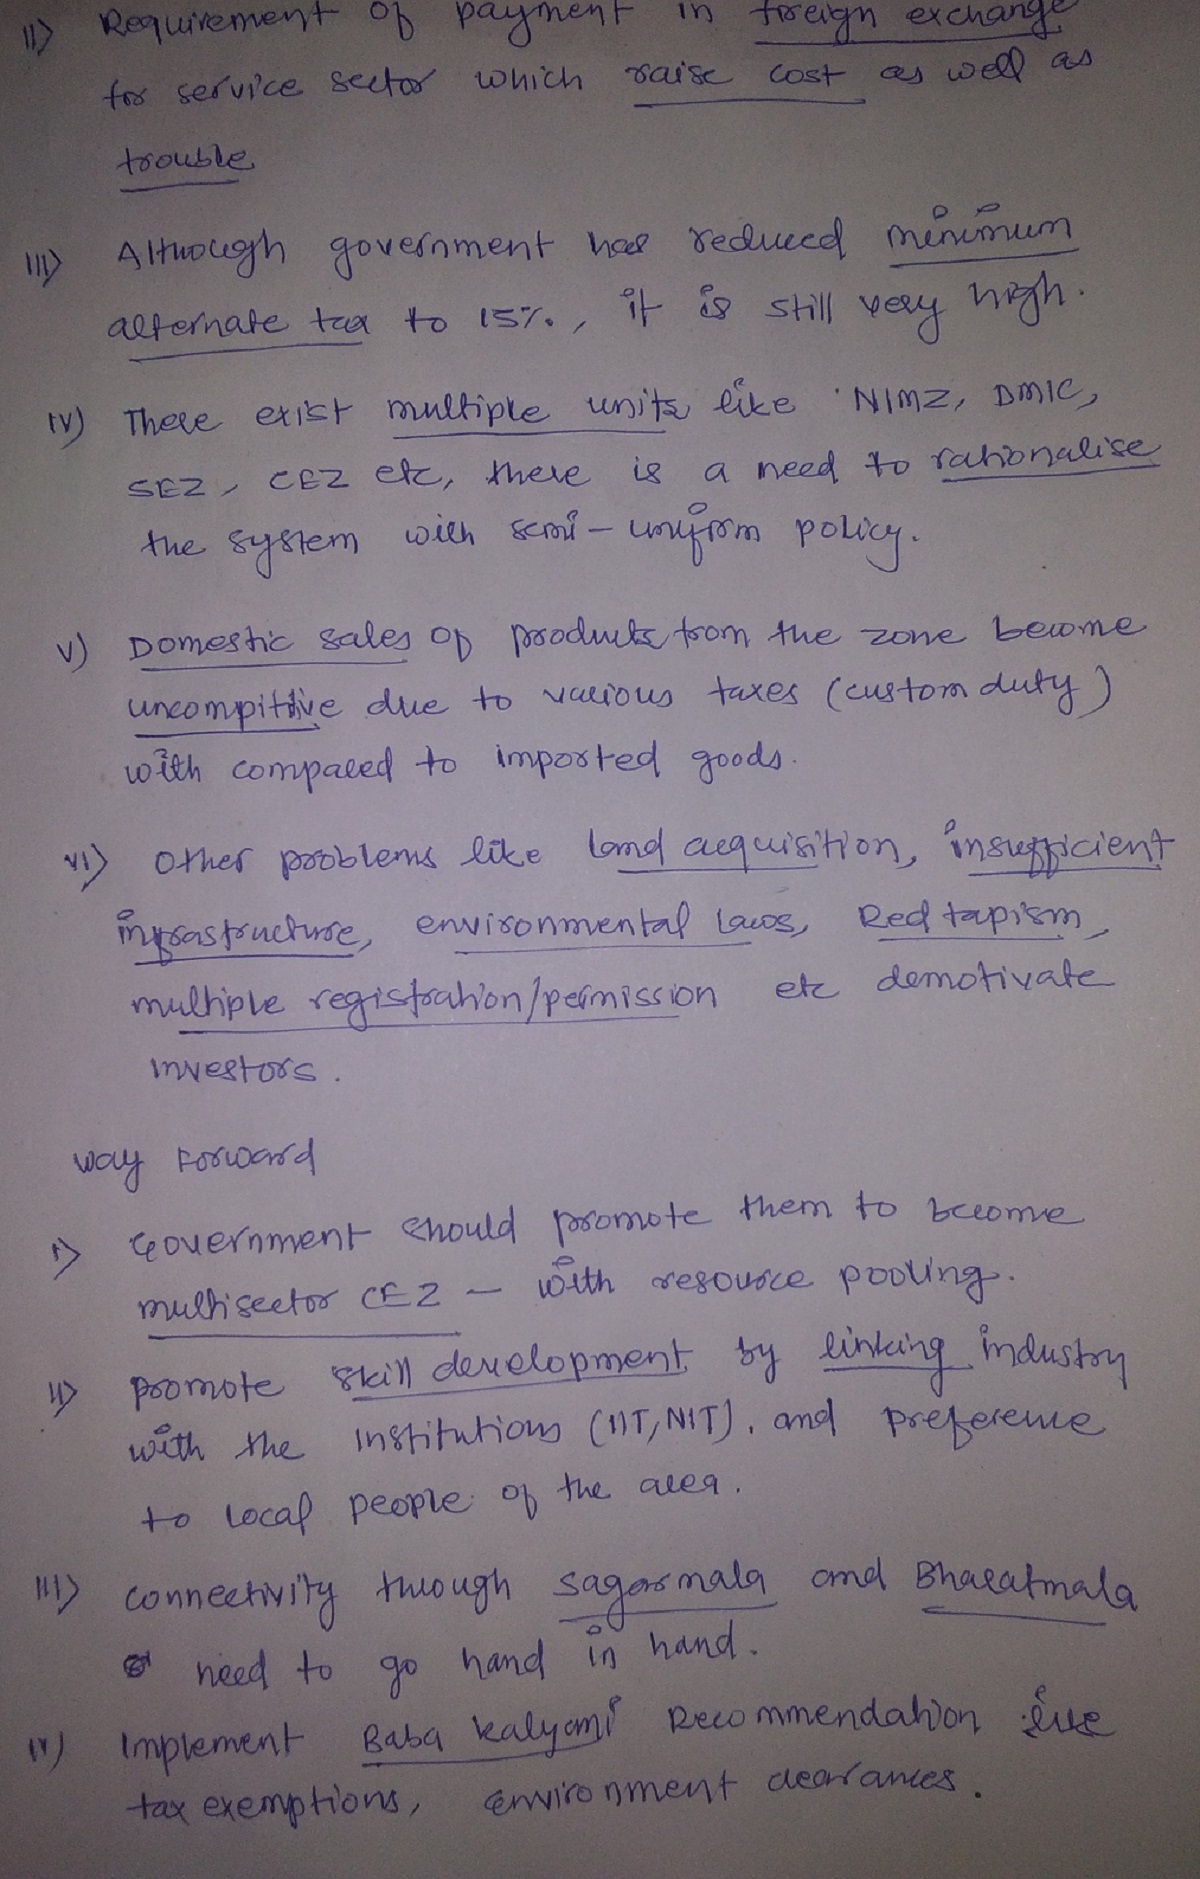 II) Requirement of payment in foreign exchange
for service sector which raise cost as well as
trouble
III) Although government has reduced minimum
alternate tax to 15%., it is still very high.
IV) There exist multiple units like NIMZ, DMIC,
SEZ, CEZ etc, there is a need to rationalise
the system with semi-uniform policy.
V) Domestic sales of products from the zone become
uncompititive due to various taxes (custom duty)
with compared to imported goods.
VI) Other problems like land acquisition, insufficient
infrastructure, environmental laws, Red tapism,
multiple registration/permission etc demotivate
investors.
Way Forward
I) Government should promote them to become
multisector CEZ - with resource pooling.
II) promote skill development by linking industry
with the institutions (IIT, NIT), and preference
to local people of the area.
III) connectivity through sagarmala and Bharatmala
need to go hand in hand.
IV) Implement Baba Kalyani Recommendation like
tax exemptions, environment clearances.